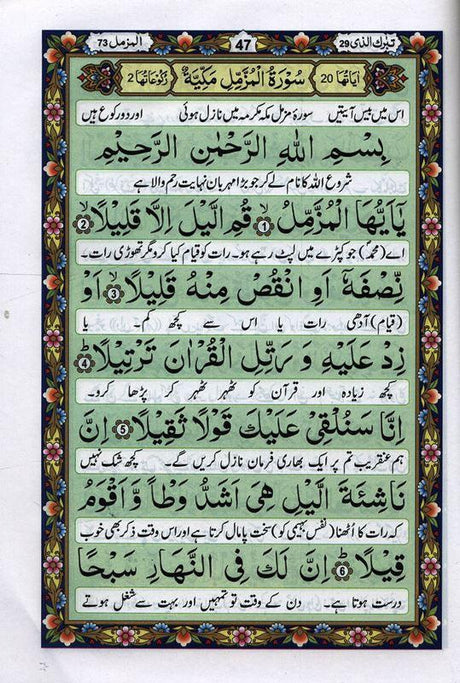 تبرك الذى 29 47 المزمل 73
اٰیَاتُهَا 20 سُوْرَةُ الْمُزَّمِّلِ مَكِّيَّةٌ رُكُوْعَاتُهَا 2
اس میں بیس آیتیں سورۂ مزمل مکہ مکرمہ میں نازل ہوئی اور دو رکوع ہیں
بِسْمِ اللّٰهِ الرَّحْمٰنِ الرَّحِيْمِ
شروع اللہ کا نام لے کر جو بڑا مہربان نہایت رحم والا ہے
يٰۤاَيُّهَا الْمُزَّمِّلُ ۙ1 قُمِ الَّيْلَ اِلَّا قَلِيْلًا ۙ2
اے (محمدؐ) جو کپڑے میں لپٹ رہے ہو۔ رات کو قیام کیا کرو مگر تھوڑی رات۔
نِّصْفَهٗۤ اَوِ انْقُصْ مِنْهُ قَلِيْلًا ۙ3 اَوْ
(قیام) آدھی رات یا اس سے کچھ کم۔ یا
زِدْ عَلَيْهِ وَ رَتِّلِ الْقُرْاٰنَ تَرْتِيْلًا ؕ4
کچھ زیادہ اور قرآن کو ٹھہر ٹھہر کر پڑھا کرو۔
اِنَّا سَنُلْقِيْ عَلَيْكَ قَوْلًا ثَقِيْلًا 5 اِنَّ
ہم عنقریب تم پر ایک بھاری فرمان نازل کریں گے۔ کچھ شک نہیں
نَاشِئَةَ الَّيْلِ هِيَ اَشَدُّ وَطْاً وَّ اَقْوَمُ
کہ رات کا اُٹھنا (نفس بہیمی کو) سخت پامال کرتا ہے اور اس وقت ذکر بھی خوب
قِيْلًا ؕ6 اِنَّ لَكَ فِي النَّهَارِ سَبْحًا
درست ہوتا ہے۔ دن کے وقت تو تمہیں اور بہت سے شغل ہوتے